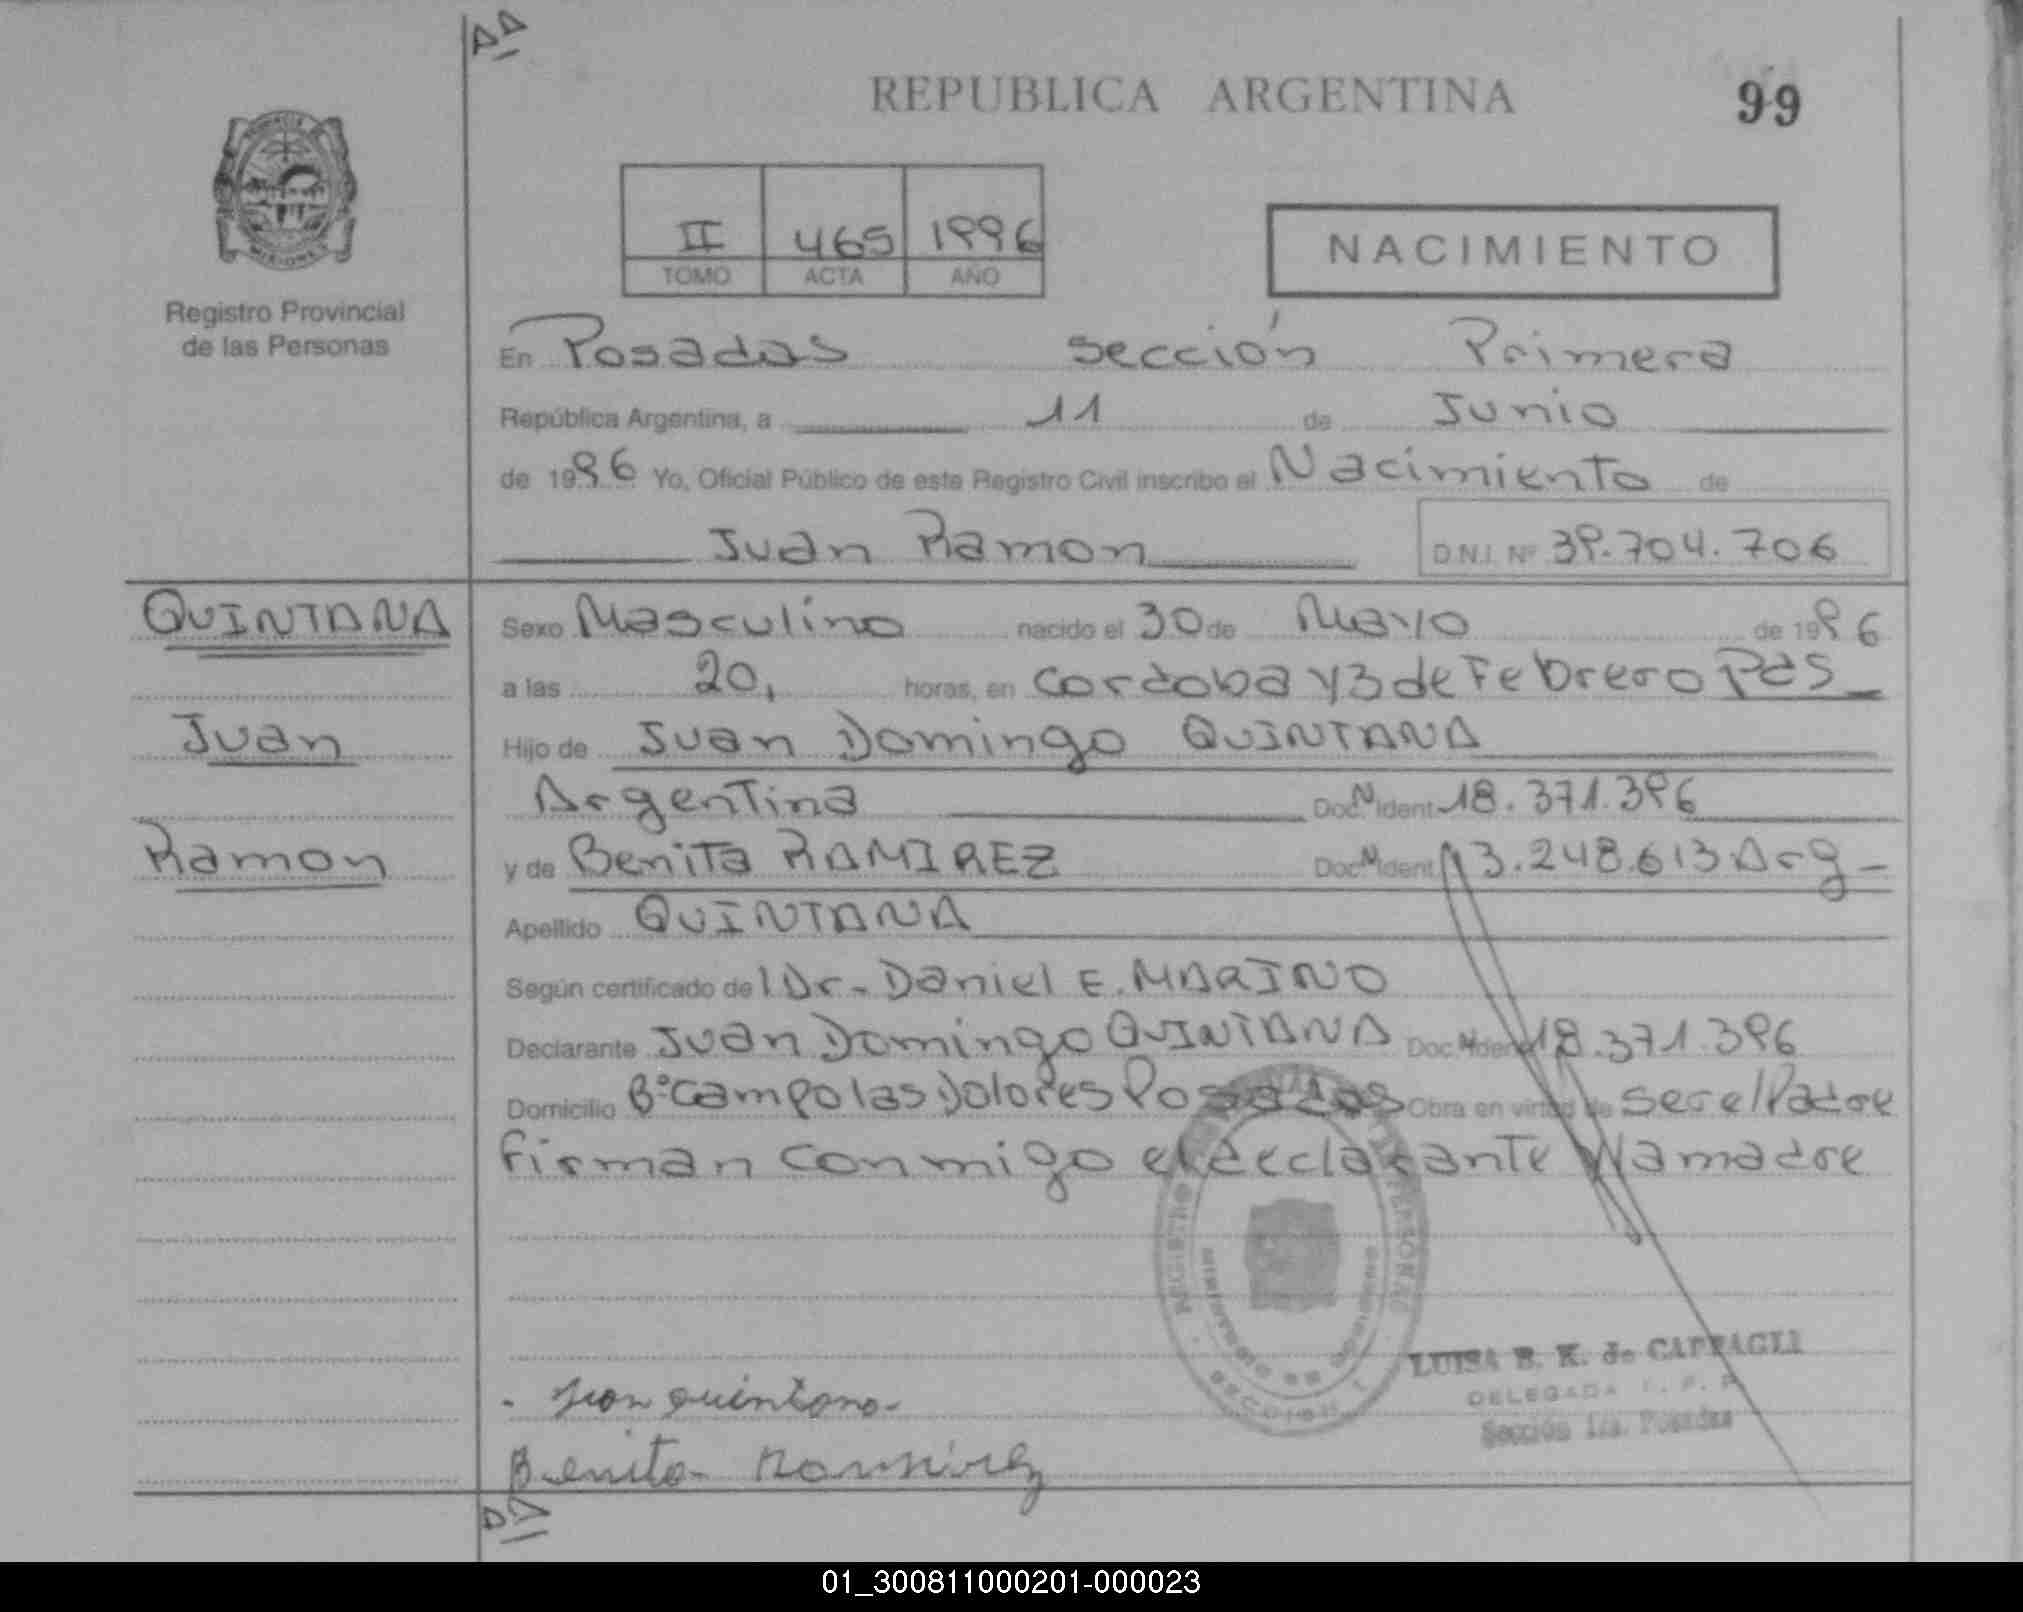 REPUBLICA ARGENTINA
99
Registro Provincial
de las Personas
II 465 1996
TOMO ACTA AÑO
NACIMIENTO
En Posadas Sección Primera
República Argentina, a 11 de Junio
de 1996 Yo, Oficial Público de este Registro Civil inscribo el Nacimiento de
Juan Ramon D.N.I. Nº 39.704.706
QUINTANA
Juan
Ramon
Sexo Masculino nacido el 30 de Mayo de 1996
a las 20, horas, en Cordoba y 3 de Febrero Pdas
Hijo de Juan Domingo QUINTANA
Argentina Doc. N Ident 18.371.396
y de Benita RAMIREZ Doc. N Ident 13.248.613 Arg
Apellido QUINTANA
Según certificado del Dr. Daniel E. MARINO
Declarante Juan Domingo QUINTANA Doc. N Ident 18.371.396
Domicilio Bº Campo las Dolores Posadas Obra en virtud de ser el Padre
firman conmigo el declarante y la madre
Juan Quintana
Benita Ramirez
REGISTRO PERSONAS
SECCION 1
LUISA B. K. de CAPPAGLI
DELEGADA
Sección 1ra. Posadas
01_300811000201-000023